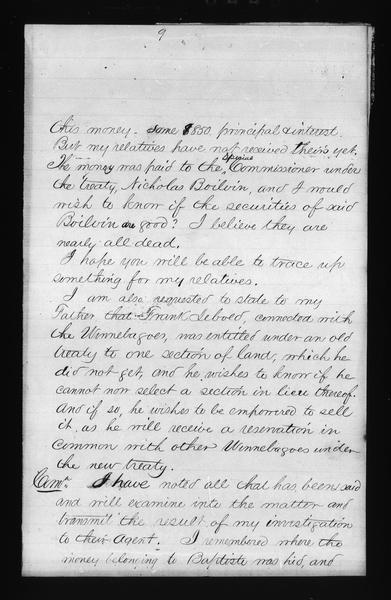 9
this money. Some $850 principal & interest.
But my relatives have not received theirs yet.
Special
The money was paid to the Commissioner under
the treaty, Nicholas Boilvin, and I would
wish to know if the securities of said
Boilvin are good? I believe they are
nearly all dead.
I hope you will be able to trace up
something for my relatives.
I am also requested to state to my
Father that Frank Leboed, connected with
the Winnebagoes, was entitled under an old
treaty to one section of land, which he
did not get, and he wishes to know if he
cannot now select a section in lieu thereof.
And if so, he wishes to be empowered to sell
it, as he will receive a reservation in
common with other Winnebagoes under
the new treaty.
Comr. I have noted all that has been said
and will examine into the matter and
transmit the result of my investigation
to their Agent. I remembered where the
money belonging to Baptiste was hid, and